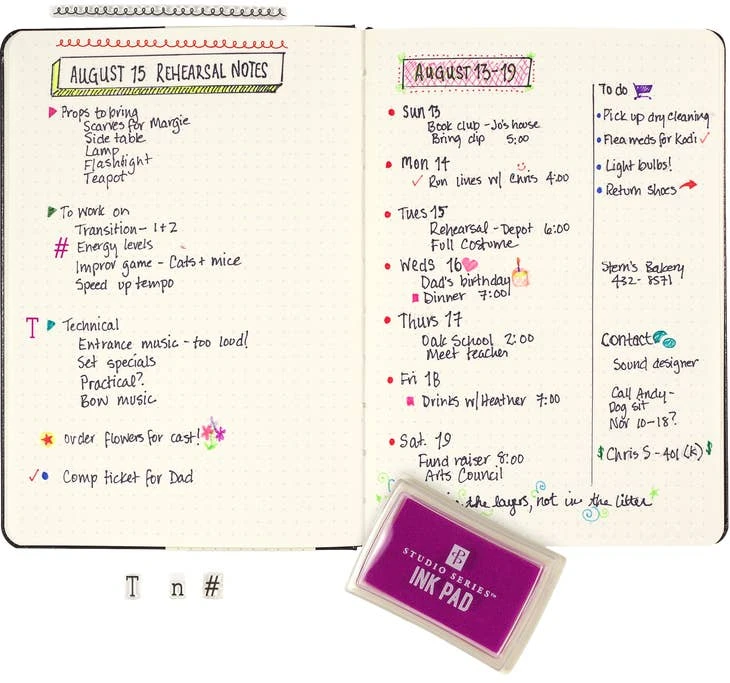 AUGUST 15 REHEARSAL NOTES
Props to bring
Scarves for Margie
Side table
Lamp
Flashlight
Teapot
To work on
Transition - 1+2
# Energy levels
Improv game - Cats + mice
Speed up tempo
T Technical
Entrance music - too loud!
Set specials
Practical?
Bow music
order flowers for cast!
Comp ticket for Dad
AUGUST 13-19
Sun 13
Book club - Jo's house
Bring dip 5:00
Mon 14
Run lines w/ Chris 4:00
Tues 15
Rehearsal - Depot 6:00
Full Costume
Weds 16
Dad's birthday
Dinner 7:00
Thurs 17
Oak School 2:00
Meet teacher
Fri 18
Drinks w/Heather 7:00
Sat. 19
Fund raiser 8:00
Arts Council
To do
Pick up dry cleaning
Flea meds for Kodi
Light bulbs!
Return shoes
Stern's Bakery
432-8571
Contact
Sound designer
Call Andy -
Dog sit
Nov 10-18?
$ Chris S - 401(k) $
in the layers, not in the litter
STUDIO SERIES™
INK PAD
T n #